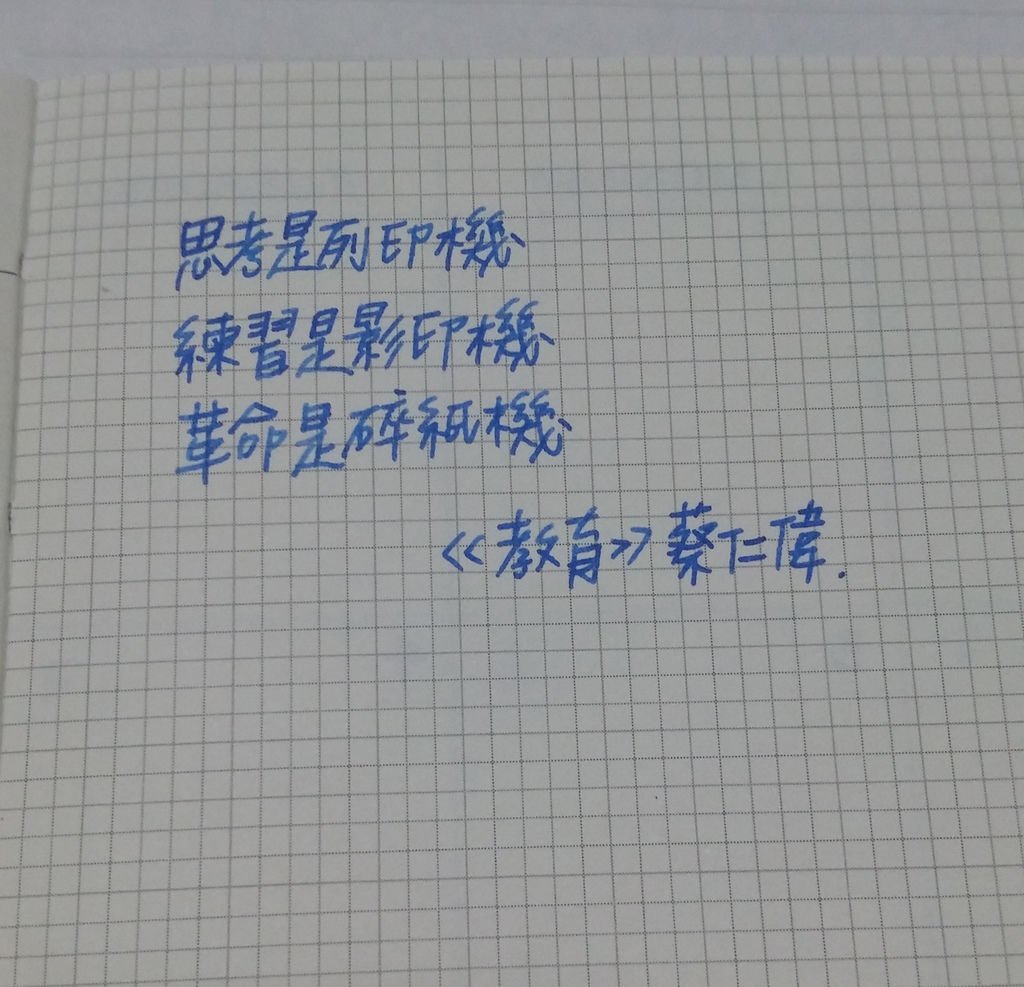 思考是列印機
練習是影印機
革命是碎紙機
《教育》蔡仁偉.